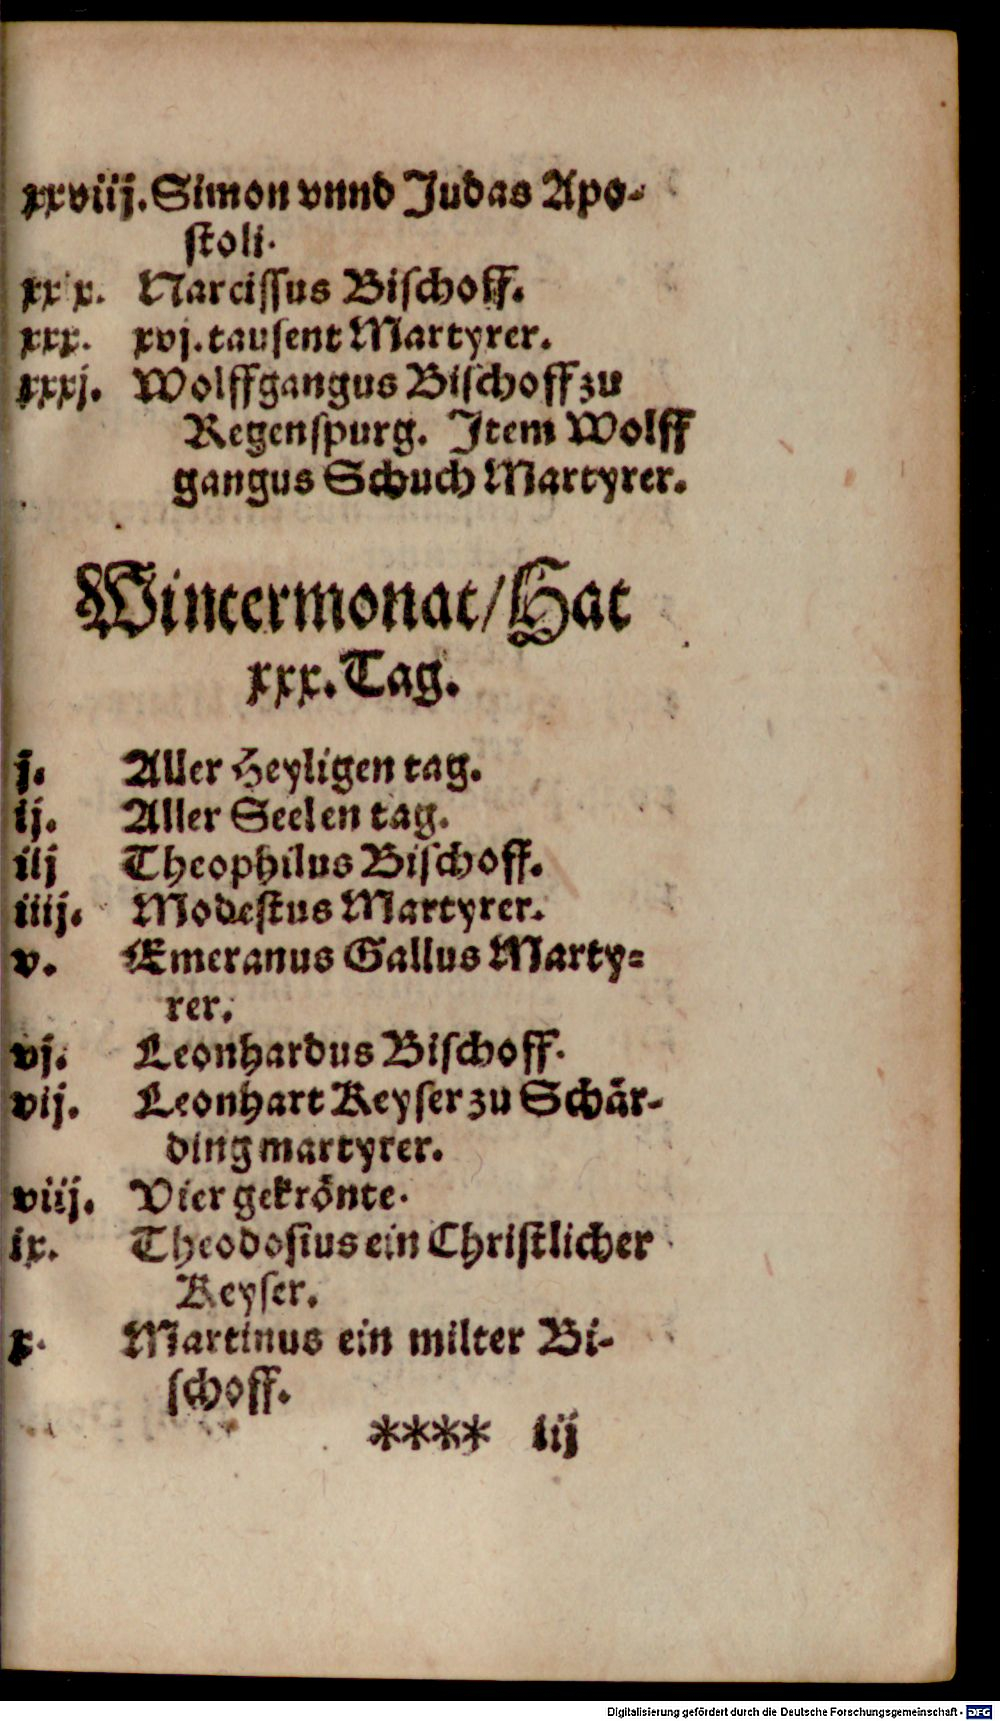 xxviij. Simon vnnd Judas Apo-
ſtoli.
xxix. Narciſſus Biſchoff.
xxx. xvj. tauſent Martyrer.
xxxj. Wolffgangus Biſchoff zu
Regenſpurg. Item Wolff
gangus Schuch Martyrer.
Wintermonat/Hat
xxx. Tag.
j. Aller Heyligen tag.
ij. Aller Seelen tag.
iij Theophilus Biſchoff.
iiij. Modeſtus Martyrer.
v. Emeranus Gallus Marty-
rer.
vj. Leonhardus Biſchoff.
vij. Leonhart Keyſer zu Schär-
ding martyrer.
viij. Vier gekrönte.
ix. Theodoſius ein Chriſtlicher
Keyſer.
x. Martinus ein milter Bi-
ſchoff.
**** iij
Digitalisierung gefördert durch die Deutsche Forschungsgemeinschaft - DFG